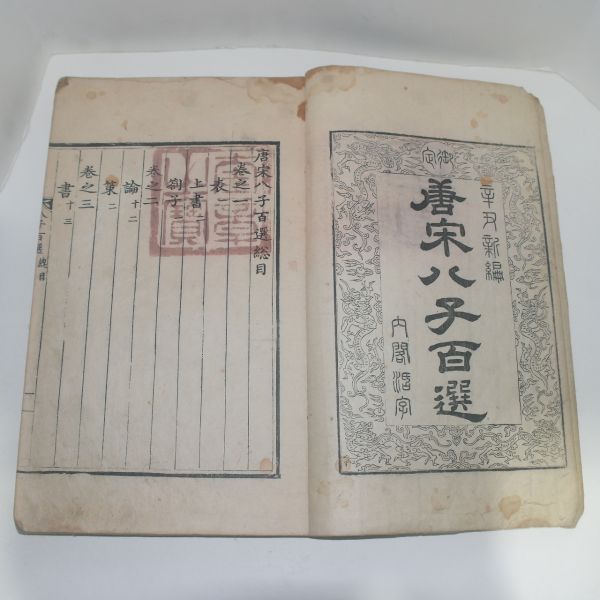 御定
辛丑新編
唐宋八子百選
內閣活字
唐宋八子百選総目
卷之一
表一
上書二
劄子一
卷之二
論十二
策二
卷之三
書十三
八子百選總目